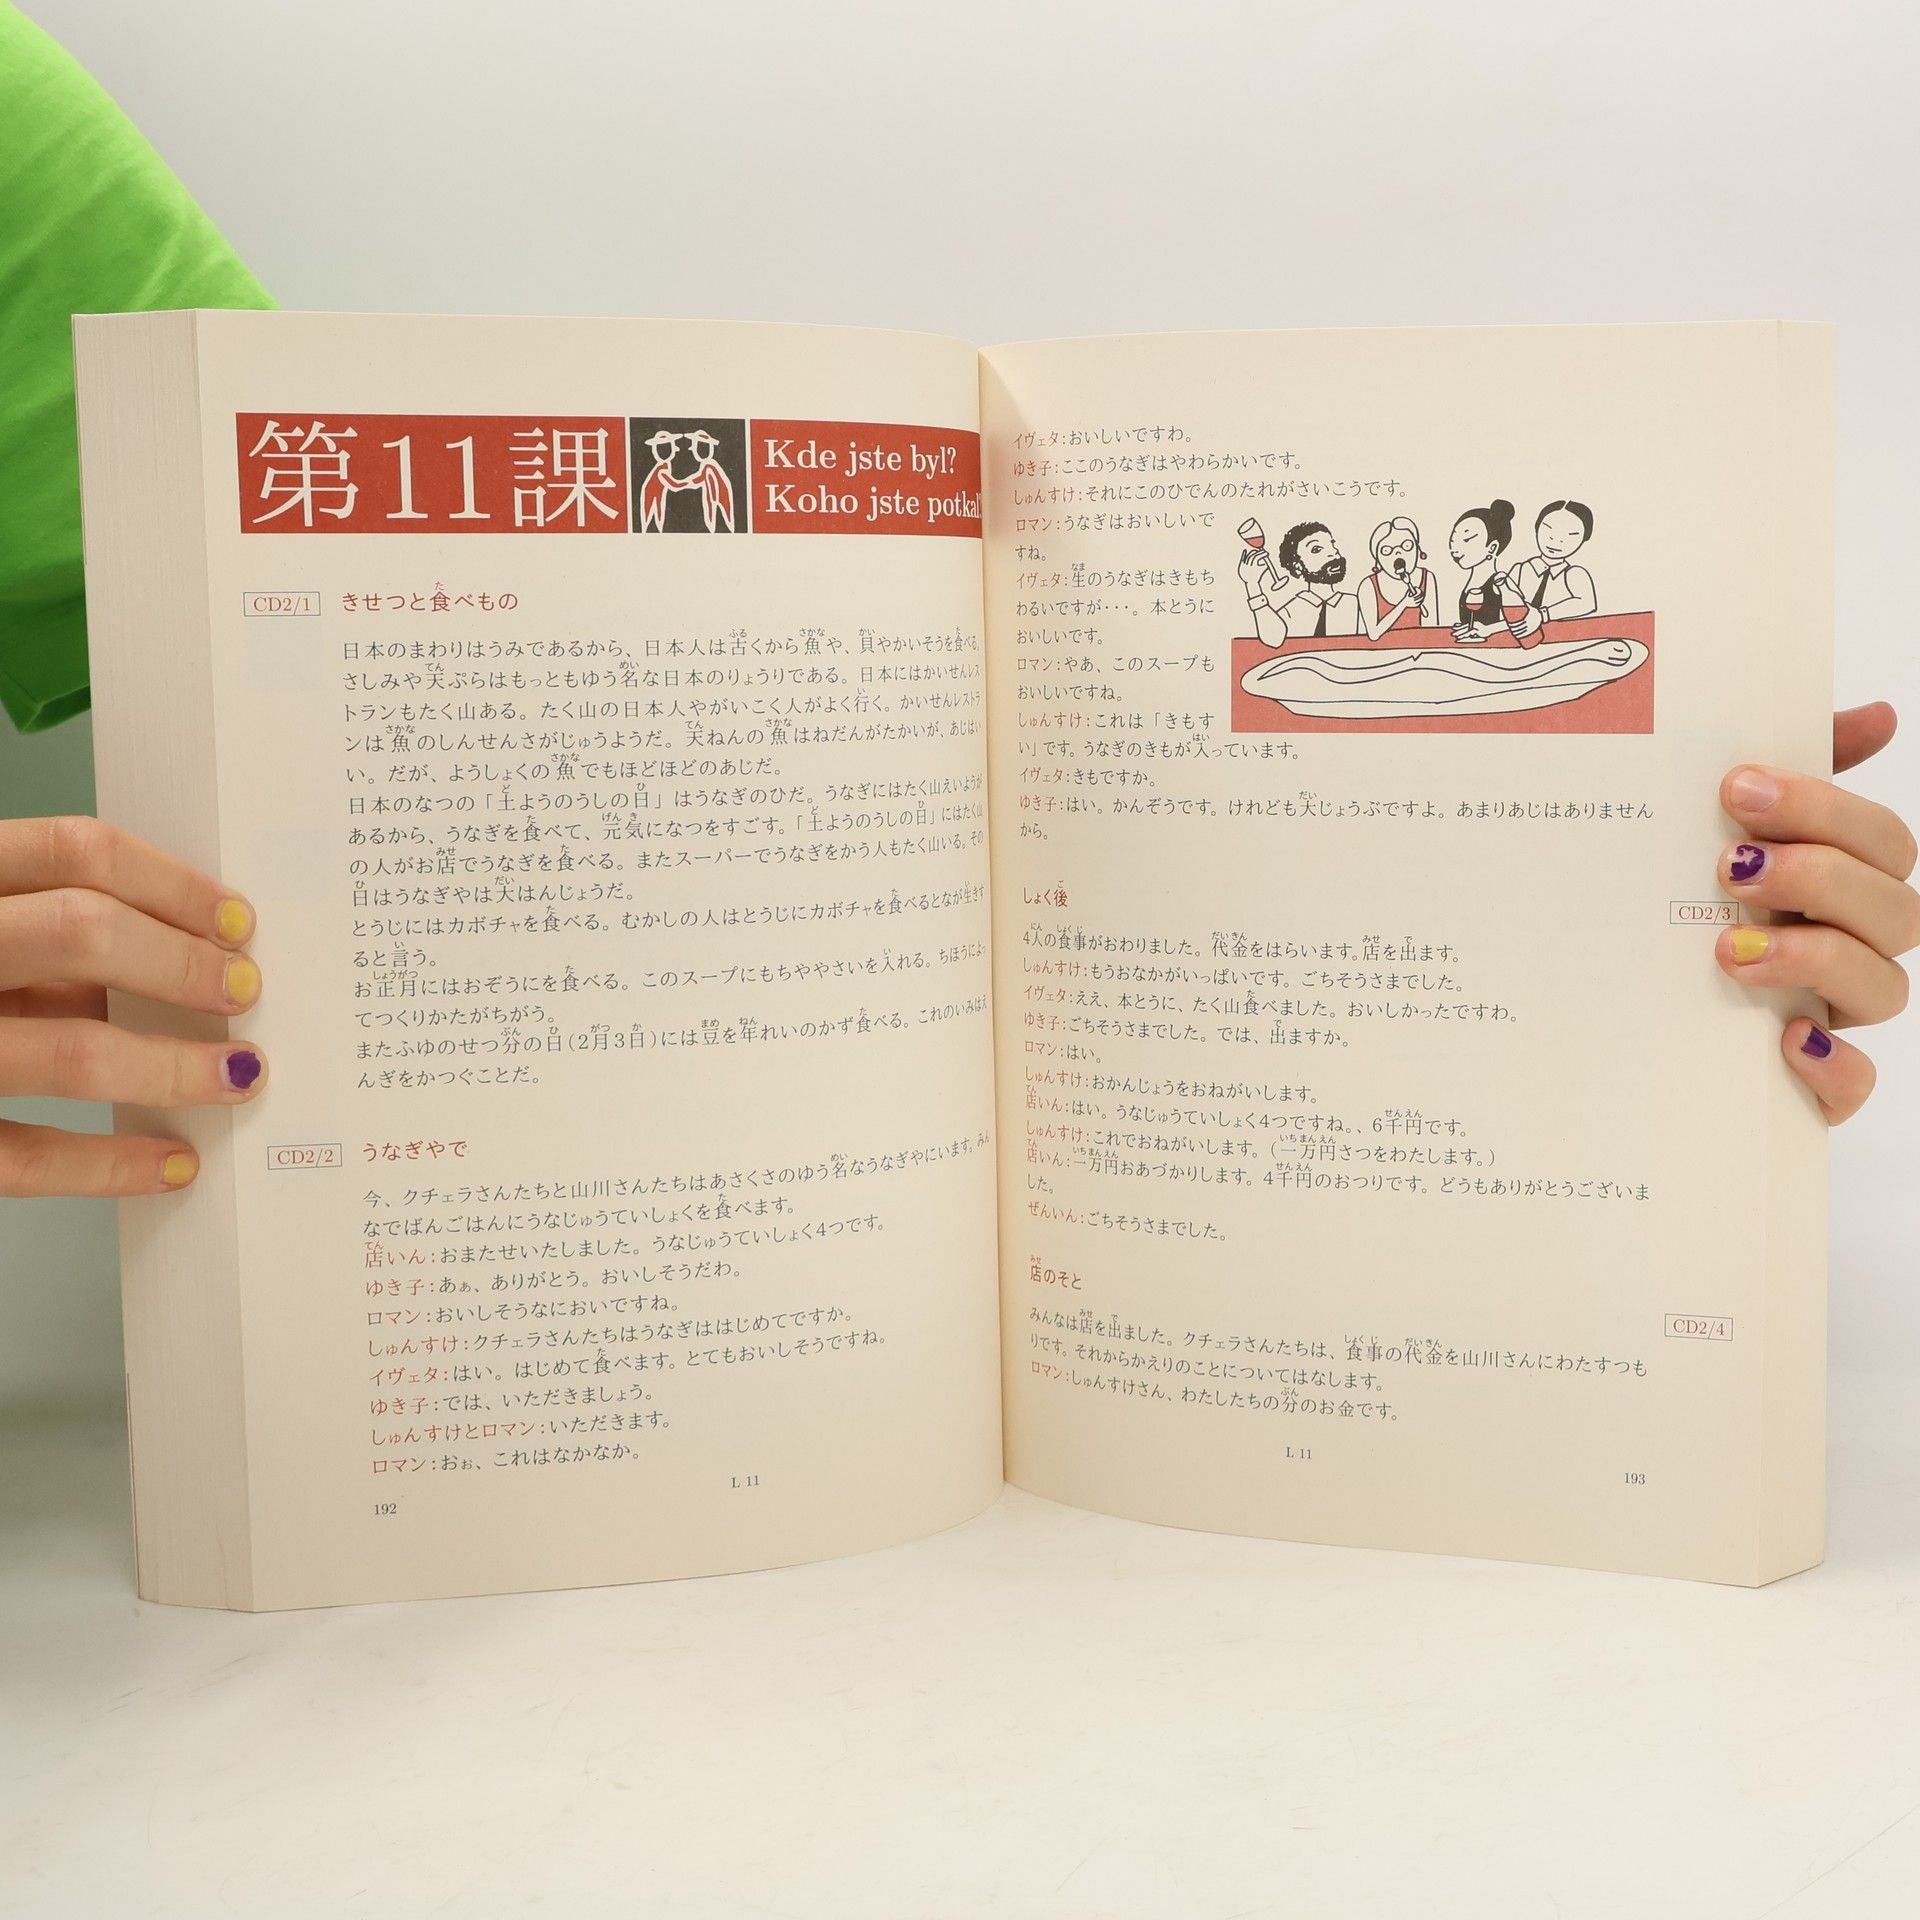 第11課
Kde jste byl?
Koho jste potkal?
CD2/1 きせつと食べもの
日本のまわりはうみであるから、日本人は古くから魚や、貝やかいそうを食べる。
さしみや天ぷらはもっともゆう名な日本のりょうりである。日本にはかいせんレス
トランもたく山ある。たく山の日本人やがいこく人がよく行く。かいせんレストラ
ンは魚のしんせんさがじゅうようだ。天ねんの魚はねだんがたかいが、あじはい
い。だが、ようしょくの魚でもほどほどのあじだ。
日本のなつの「土ようのうしの日」はうなぎのひだ。うなぎにはたく山えいようが
あるから、うなぎを食べて、元気になつをすごす。「土ようのうしの日」にはたく山
の人がお店でうなぎを食べる。またスーパーでうなぎをかう人もたく山いる。その
日はうなぎやは大はんじょうだ。
とうじにはカボチャを食べる。むかしの人はとうじにカボチャを食べるとなが生きす
ると言う。
お正月にはおぞうにを食べる。このスープにもちややさいを入れる。ちほうによっ
てつくりかたがちがう。
またふゆのせつ分の日(2月3日)には豆を年れいのかず食べる。これのいみはえ
んぎをかつぐことだ。
CD2/2 うなぎやで
今、クチェラさんたちと山川さんたちはあさくさのゆう名なうなぎやにいます。みん
なでばんごはんにうなじゅうていしょくを食べます。
店いん:おまたせいたしました。うなじゅうていしょく4つです。
ゆき子:あぁ、ありがとう。おいしそうだわ。
ロマン:おいしそうなにおいですね。
しゅんすけ:クチェラさんたちはうなぎははじめてですか。
イヴェタ:はい。はじめて食べます。とてもおいしそうですね。
ゆき子:では、いただきましょう。
しゅんすけとロマン:いただきます。
ロマン:おぉ、これはなかなか。
L 11
192
イヴェタ:おいしいですわ。
ゆき子:ここのうなぎはやわらかいです。
しゅんすけ:それにこのひでんのたれがさいこうです。
ロマン:うなぎはおいしいで
すね。
イヴェタ:生のうなぎはきもち
わるいですが・・・。本とうに
おいしいです。
ロマン:やあ、このスープも
おいしいですね。
しゅんすけ:これは「きもす
い」です。うなぎのきもが入っています。
イヴェタ:きもですか。
ゆき子:はい。かんぞうです。けれども大じょうぶですよ。あまりあじはありません
から。
しょく後
CD2/3
4人の食事がおわりました。代金をはらいます。店を出ます。
しゅんすけ:もうおなかがいっぱいです。ごちそうさまでした。
イヴェタ:ええ、本とうに、たく山食べました。おいしかったですわ。
ゆき子:ごちそうさまでした。では、出ますか。
ロマン:はい。
しゅんすけ:おかんじょうをおねがいします。
店いん:はい。うなじゅうていしょく4つですね。、6千円です。
しゅんすけ:これでおねがいします。(一万円さつをわたします。)
店いん:一万円おあづかりします。4千円のおつりです。どうもありがとうございま
した。
ぜんいん:ごちそうさまでした。
店のそと
CD2/4
みんなは店を出ました。クチェラさんたちは、食事の代金を山川さんにわたすつも
りです。それからかえりのことについてはなします。
ロマン:しゅんすけさん、わたしたちの分のお金です。
L 11
193